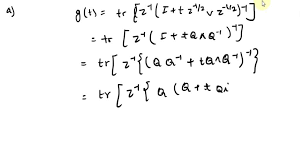 a) g(t) = tr [z⁻¹(I + t z⁻¹/² v z⁻¹/²)⁻¹]
= tr [z⁻¹ (I + t Q Λ Q⁻¹)⁻¹]
= tr [z⁻¹ {(Q Q⁻¹ + t Q Λ Q⁻¹)⁻¹}
= tr [z⁻¹ { Q (Q + t Qi